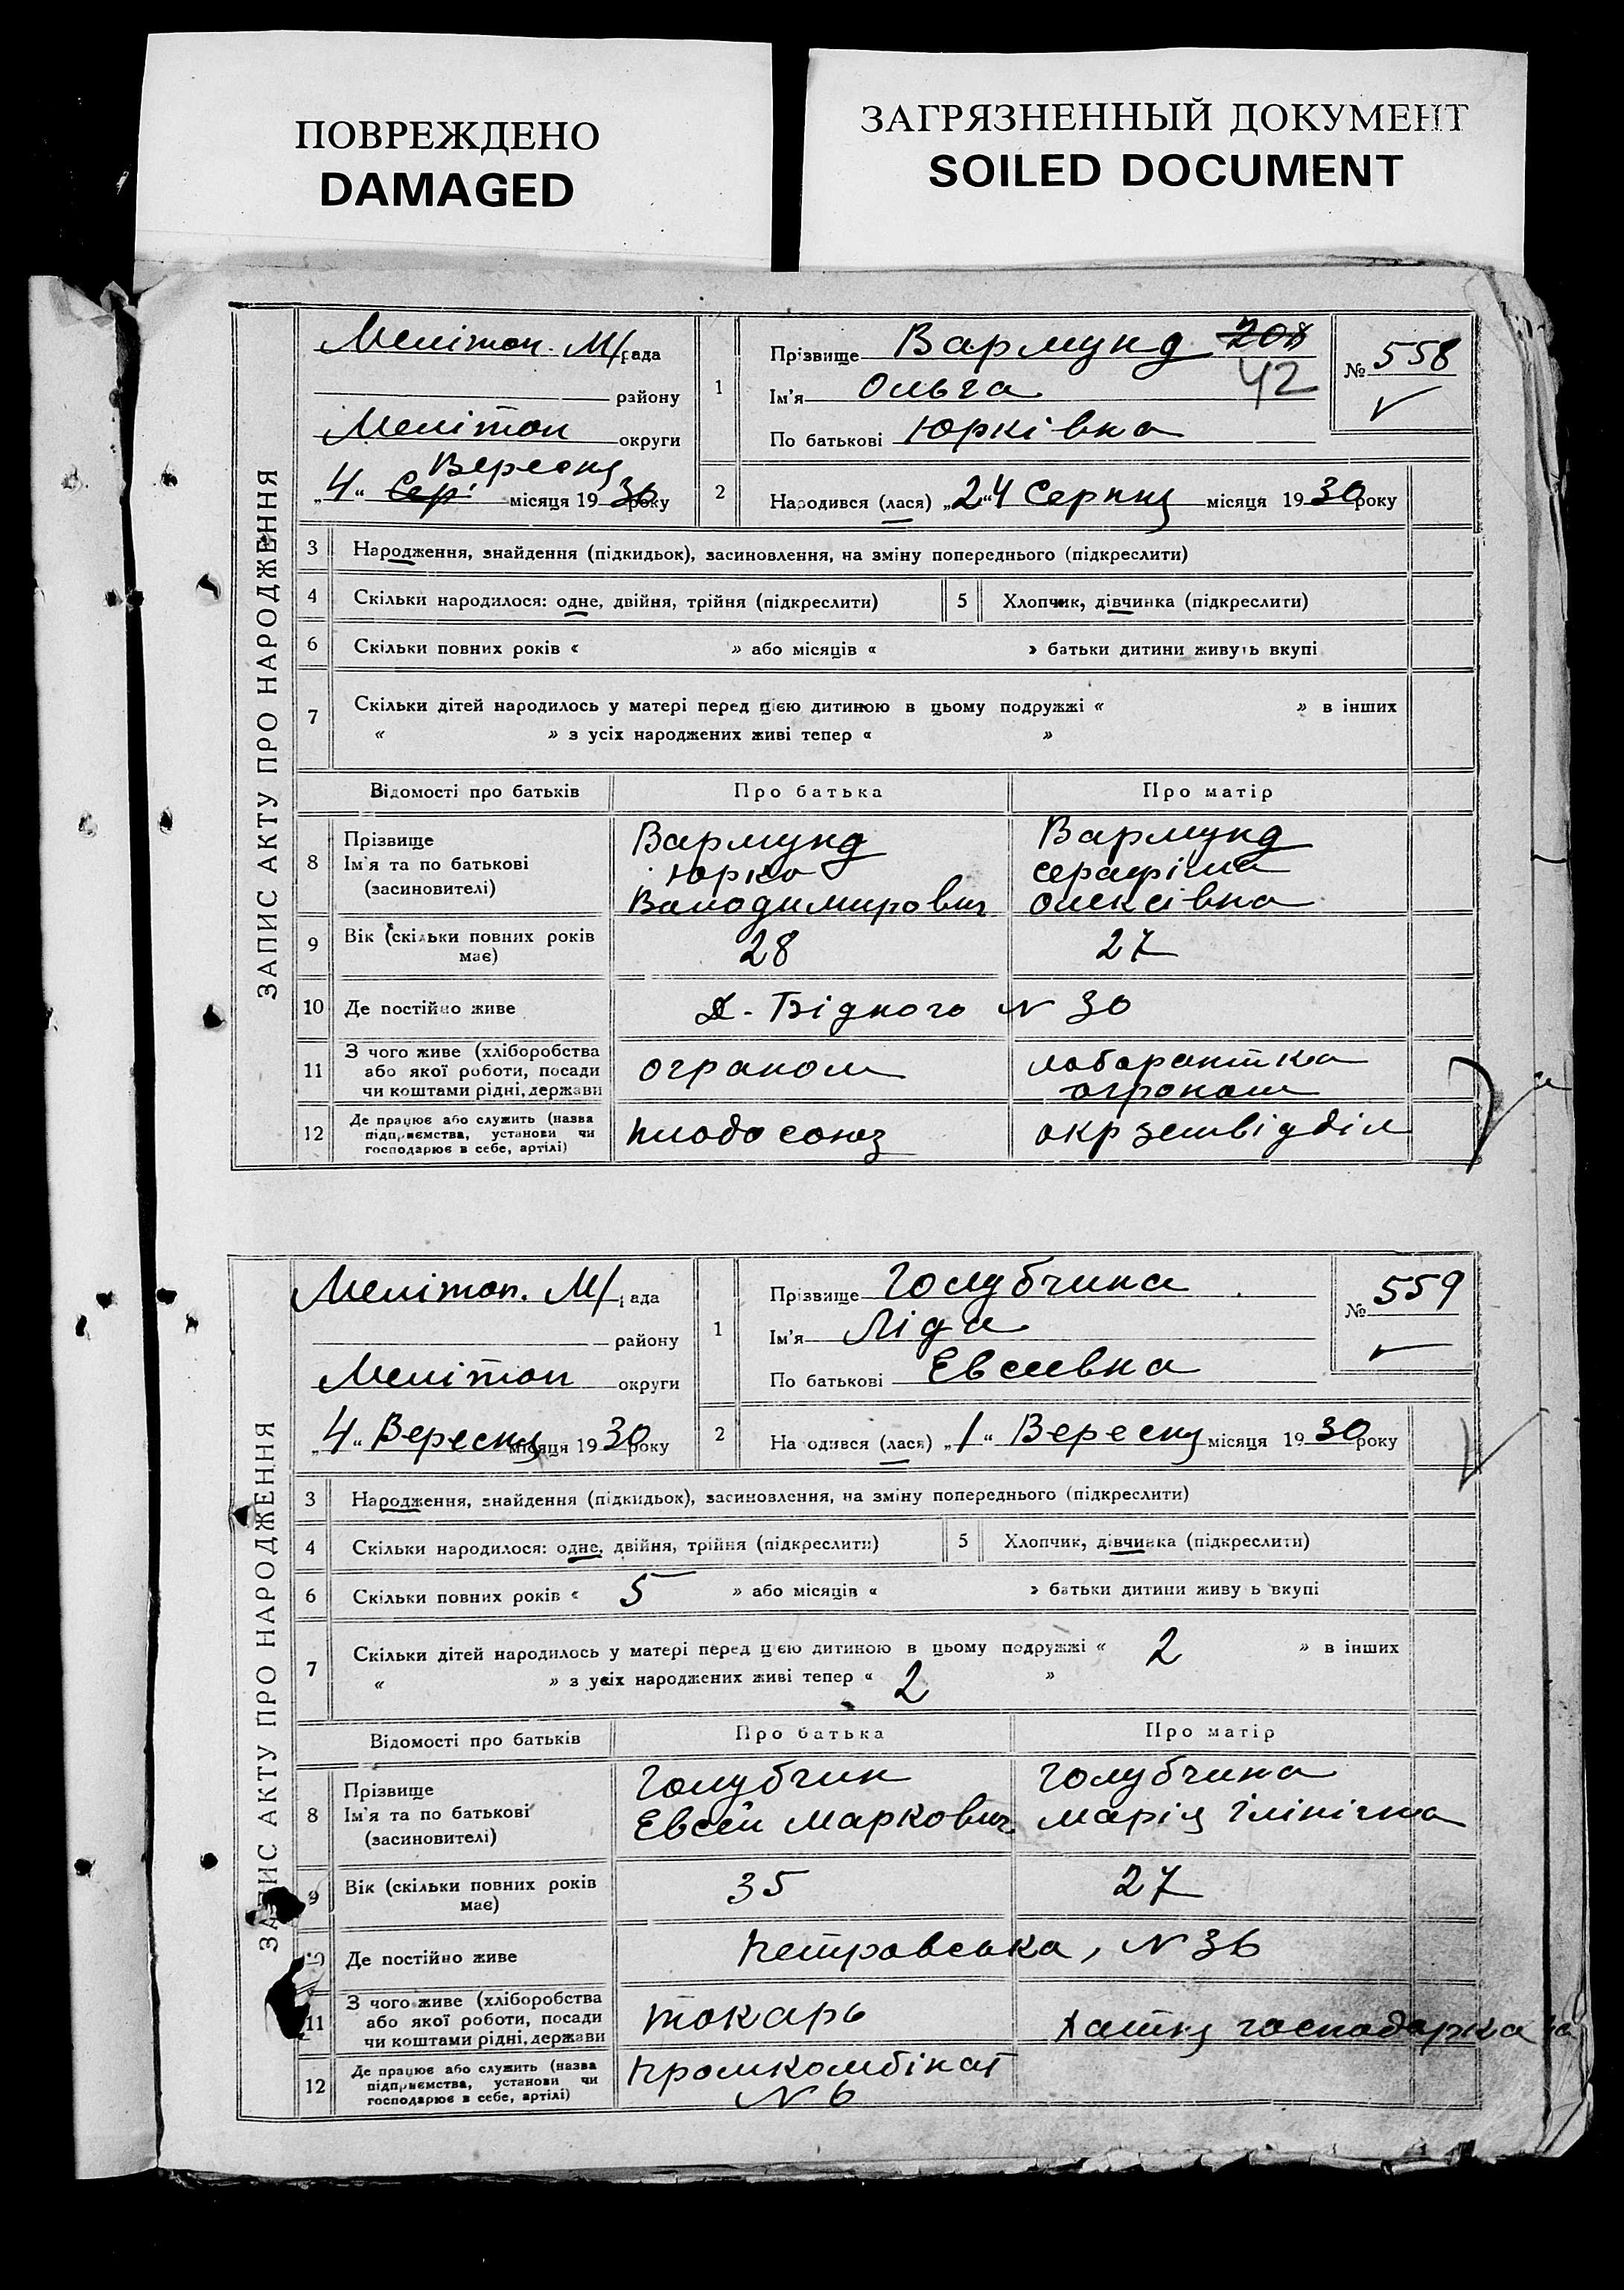 ПОВРЕЖДЕНО
DAMAGED
ЗАГРЯЗНЕННЫЙ ДОКУМЕНТ
SOILED DOCUMENT
ЗАПИС АКТУ ПРО НАРОДЖЕННЯ
Мелітоп. М/рада
району
Мелітоп округи
Вересня
„4“ Сер. місяця 1930 року
1
Прізвище Вармунд 208
Ім'я Ольга 42
По батькові Юрківна
№ 558
2
Народився (лася) „24“ Серпня місяця 1930 року
3 Народження, знайдення (підкидьок), засиновлення, на зміну попереднього (підкреслити)
4 Скільки народилося: одне, двійня, трійня (підкреслити) 5 Хлопчик, дівчинка (підкреслити)
6 Скільки повних років « » або місяців « » батьки дитини живуть вкупі
7 Скільки дітей народилось у матері перед цією дитиною в цьому подружжі « » в інших
« » з усіх народжених живі тепер « »
Відомості про батьків Про батька Про матір
8 Прізвище
Ім'я та по батькові
(засиновителі)
Вармунд
Юрко
Володимирович
Вармунд
Серафіма
Олексівна
9 Вік (скільки повних років
має)
28 27
10 Де постійно живе Д. Бідного N 30
11 З чого живе (хліборобства
або якої роботи, посади
чи коштами рідні, держави
ограном
лаборантка
агроном
12 Де працює або служить (назва
підприємства, установи чи
господарює в себе, артілі)
плодосоюз окрземвідділ
ЗАПИС АКТУ ПРО НАРОДЖЕННЯ
Мелітоп. М/рада
району
Мелітоп округи
„4“ Вересня місяця 1930 року
1
Прізвище Голубчина
Ім'я Ліда
По батькові Евсеевна
№ 559
2
Народився (лася) „1“ Вересня місяця 1930 року
3 Народження, знайдення (підкидьок), засиновлення, на зміну попереднього (підкреслити)
4 Скільки народилося: одне, двійня, трійня (підкреслити) 5 Хлопчик, дівчинка (підкреслити)
6 Скільки повних років « 5 » або місяців « » батьки дитини живуть вкупі
7 Скільки дітей народилось у матері перед цією дитиною в цьому подружжі « 2 » в інших
« » з усіх народжених живі тепер « 2 »
Відомості про батьків Про батька Про матір
8 Прізвище
Ім'я та по батькові
(засиновителі)
Голубчин
Евсей Маркович
Голубчина
Марія Іллінічна
9 Вік (скільки повних років
має)
35 27
10 Де постійно живе Петровська, N 36
11 З чого живе (хліборобства
або якої роботи, посади
чи коштами рідні, держави
токарь господарка
12 Де працює або служить (назва
підприємства, установи чи
господарює в себе, артілі)
Промкомбінат
N 6